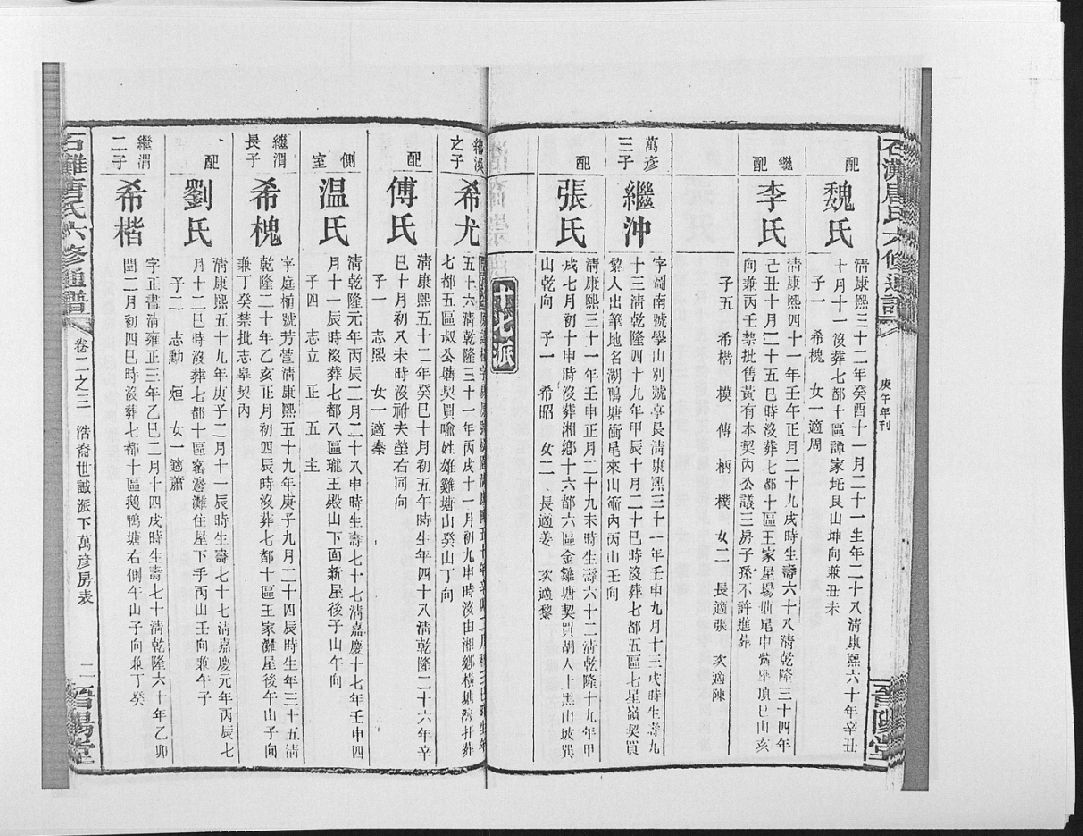 石灘唐氏六修通譜
庚午年刊
晉陽堂
配
魏氏
清康熙三十二年癸酉十一月二十一生年二十八清康熙六十年辛丑
十月十一沒葬七都十區譚家坨艮山坤向兼丑未
子一 希槐 女一適周
繼配
李氏
清康熙四十一年壬午正月二十九戌時生壽六十八清乾隆三十四年
己丑十月二十五巳時沒葬七都十區王家屋場
向兼丙壬禁批舊黃有本契內公議三房子孫不許進葬
子五 希楷 模 傳 柄 樸 女二 長適張 次適陳
萬彥三子
繼沖
十三清乾隆四十九年甲辰十月二十巳時沒葬七都五區七星嶺契買
黎人出筆地名湖鴨塘衝尾來山嶄內丙山壬向
配
張氏
清康熙三十一年壬申正月二十九未時生壽六十二清乾隆十九年甲
戌七月初十申時沒葬湘鄉十六都六區金雞塘契買胡人
山乾向 子一 希昭 女二 長適姜 次適黎
希允
五十六清乾隆三十一年丙戌十一月初九申時沒由湘鄉橫塘
七都五區叔公塘契買喻姓雄雞塘山癸山丁向
配
傅氏
清康熙五十二年癸巳十月初五午時生年四十八清乾隆二十六年辛
巳十月初八未時沒祔夫塋右同向
子一 志熙 女一適秦
側室
温氏
清乾隆元年丙辰二月二十八申時生壽七十七清嘉慶十七年壬申四
月十一辰時沒葬七都八區瓏王殿山下面新屋後子山午向
子四 志立 正 五 主
繼渭長子
希槐
字庭植號芳萱清康熙五十九年庚子九月二十四辰時生年三十五清
乾隆二十年乙亥正月初四辰時沒葬七都十區王家灘屋後午山子向
兼丁癸禁批志皋契內
配
劉氏
清康熙五十九年庚子二月十一辰時生壽七十七清嘉慶元年丙辰七
月十二巳時沒葬七都十區窰灣灘住屋下手丙山壬向兼午子
子二 志勳 烜 女一適蕭
繼渭二子
希楷
字正書清雍正三年乙巳二月十四戌時生壽七十清乾隆六十年乙卯
閏二月初四巳時沒葬七都十區鵝鴨塘右側午山子向兼丁癸
石灘唐氏六修通譜
卷二之三 浩裔世誠派下萬彥房表
二
晉陽堂